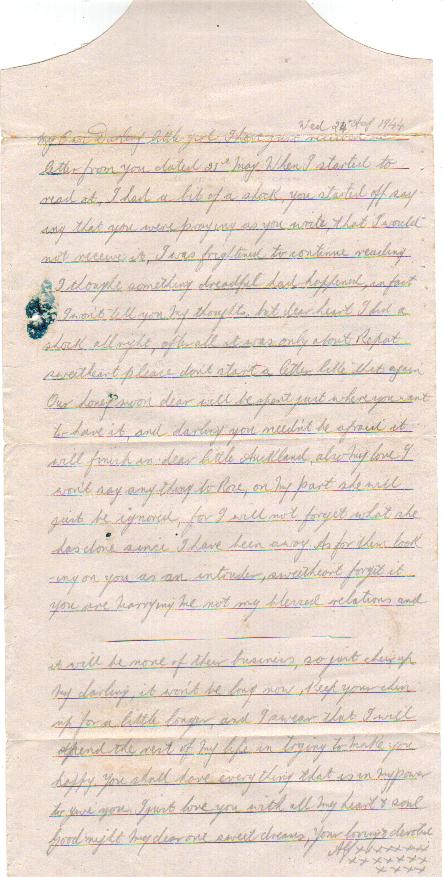 Wed 24th Aug 1944
My Own Darling little girl, I have just received
letter from you dated 31st May. When I started to
read it, I had a bit of a shock, you started off say
ing that you were praying as you write, that I would
not receive it, I was frightened to continue reading
I thought something dreadful had happened, in fact
I wont tell you my thoughts, but dear heart I did a
shock allright, after all it was only about Repat
sweetheart please dont start a letter like that again
Our honey moon dear will be spent just where you want
to have it, and darling you needn't be afraid it
will finish in dear little Auckland, also my love I
won't say anything to Rose, on my part she will
just be ignored, for I will not forget what she
has done since I have been away. As for them look
-ing on you as an intruder, sweetheart forget it
you are marrying me not my blessed relations and
it will be none of their business, so just cheer up
my darling it won't be long now, keep your chin
up for a little longer, and I swear that I will
spend the rest of my life in trying to make you
happy. You shall have everything that is in my power
to give you. I just love you with all my heart & soul
Good night my dear one sweet dreams, Your loving & devoted
Alf xxxxxxx
xxxxxxx
xxxx